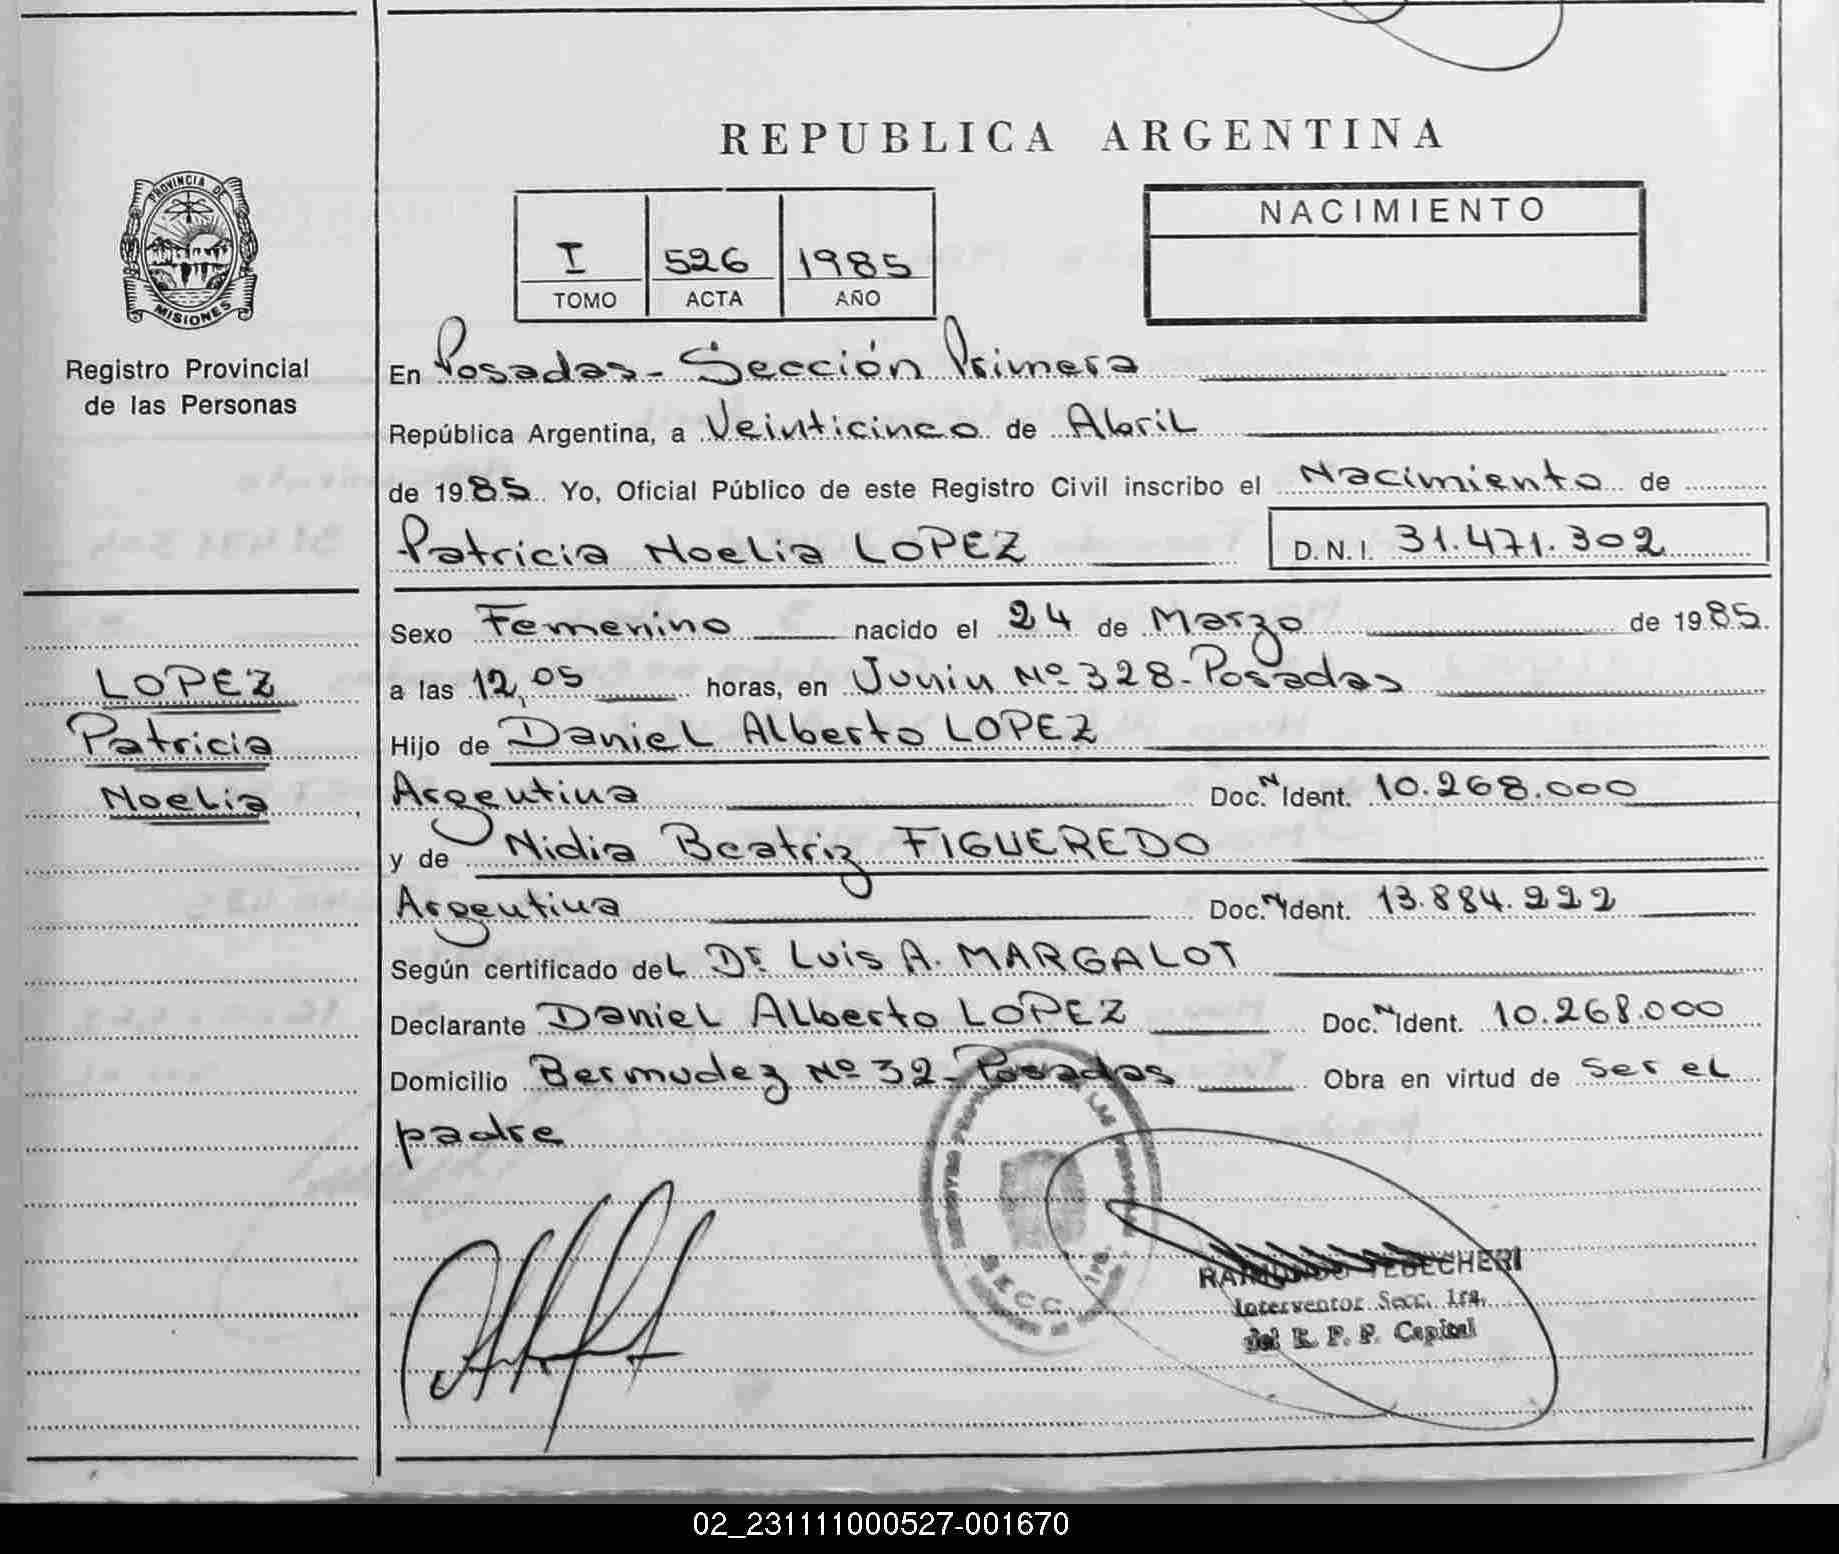 REPUBLICA ARGENTINA
PROVINCIA DE
MISIONES
Registro Provincial
de las Personas
I 526 1985
TOMO ACTA AÑO
NACIMIENTO
En Posadas - Sección Primera
República Argentina, a Veinticinco de Abril
de 1985 Yo, Oficial Público de este Registro Civil inscribo el Nacimiento de
Patricia Noelia LOPEZ D.N.I. 31.471.302
LOPEZ
Patricia
Noelia
Sexo Femenino nacido el 24 de Marzo de 1985.
a las 12,05 horas, en Junin Nº 328 - Posadas
Hijo de Daniel Alberto LOPEZ
Argentina Doc. N Ident. 10.268.000
y de Nidia Beatriz FIGUEREDO
Argentina Doc. N Ident. 13.884.222
Según certificado del Dr. Luis A. MARGALOT
Declarante Daniel Alberto LOPEZ Doc. N Ident. 10.268.000
Domicilio Bermudez Nº 32 - Posadas Obra en virtud de ser el
padre
SECC. 1ra.
Interventor Secc. 1ra.
del R. P. P. Capital
02_231111000527-001670